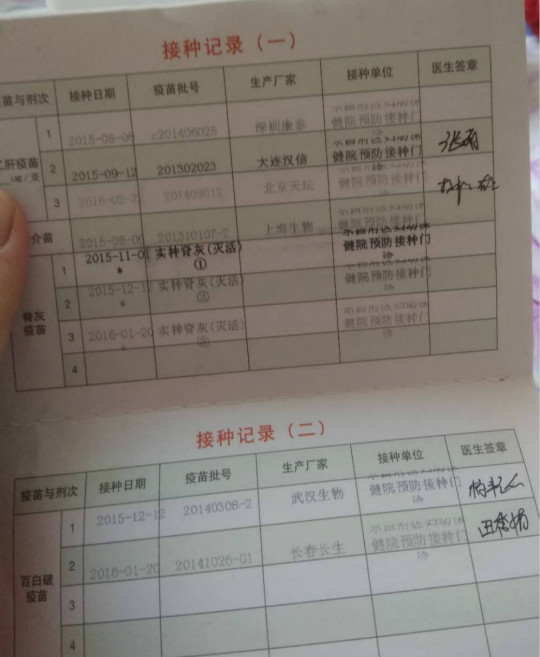 接种记录（一）
疫苗与剂次 接种日期 疫苗批号 生产厂家 接种单位 医生签章
乙肝疫苗
1 2015-08-06 c201406025 深圳康泰 健院预防接种门诊
2 2015-09-12 201302023 大连汉信 健院预防接种门诊
3 2016-02-2 201409012 北京天坛 健院预防接种门
介苗 2015-08-06 201310107-2 上海生物 健院预防接种门诊
脊灰疫苗
1 2015-11-01 * 实种脊灰(灭活)① 健院预防接种门诊
2 2015-12-12 * 实种脊灰(灭活)② 健院预防接种门诊
3 2016-01-20 * 实种脊灰(灭活)③ 健院预防接种门诊
4
接种记录（二）
疫苗与剂次 接种日期 疫苗批号 生产厂家 接种单位 医生签章
百白破疫苗
1 2015-12-12 20140308-2 武汉生物 健院预防接种门诊
2 2016-01-20 20141026-01 长春长生 健院预防接种门诊
3
4